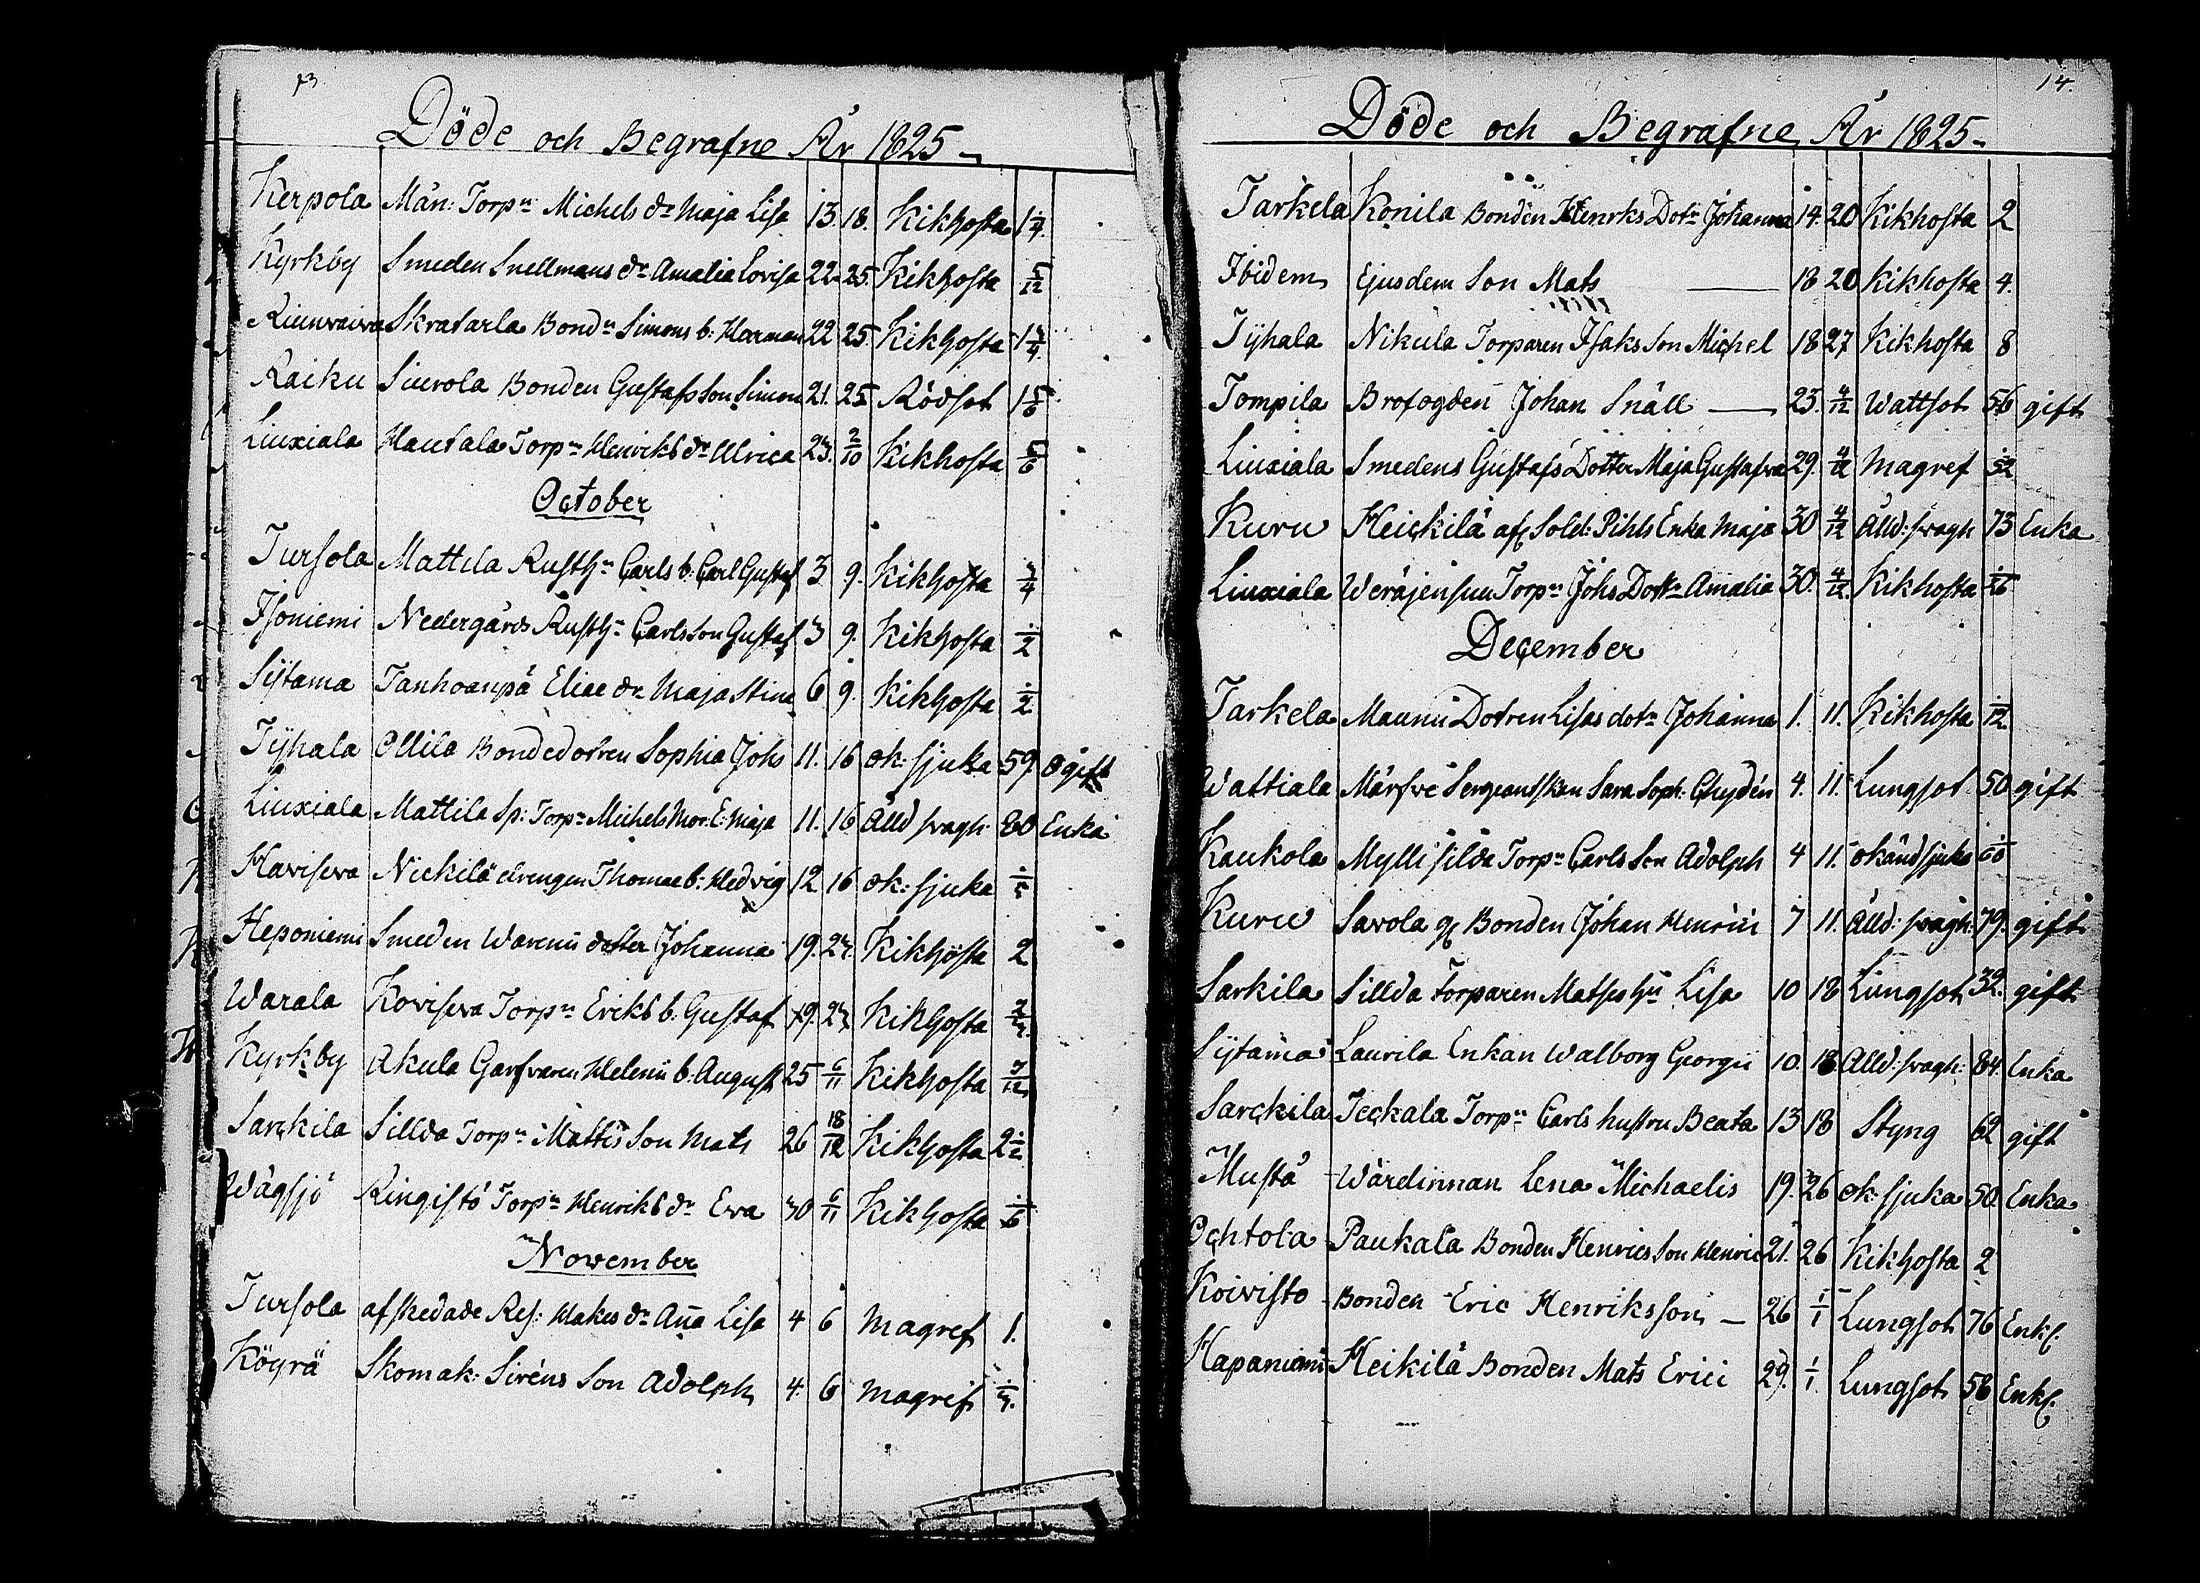 13.
Döde och Begrafne År 1825
Kerpola Mån: Torp:n Michels dr Maja Lisa 13. 18. Kikhosta 1 1/4.
Kyrkby Smeden Snellmans dr Amalia Lovisa 22 25. Kikhosta 5/12
Skrafarla Bond:n Simons b. Herman 22 25 Kikhosta 1 3/4.
Raiku Siurola Bonden Gustafs Son Simon 21. 25 Rödsot 1 5/6
Liuxiala Hautala Torp:n Henriks dr Ulrica 23. 2/10 Kikhosta 5/6
October
Tursola Mattila Rusth:n Carls b. Carl Gustaf 3. 9. Kikhosta 3/4
Isoniemi Nedergårds Rusth:n Carls Son Gustaf 3 9. Kikhosta 1/2
Sijtama Tanhoanpä Eliae dr Maja Stina 6 9. Kikhosta 1/2.
Tijhala Ollila Bondedottren Sophia Johs 11. 16 ok: sjuka 59. Ogift
Liuxiala Mattila Sp: Torp:n Michels Mor E: Maja 11. 16 Ålld. swagh: 80 Enka
Havisewa Nickilä drengen Thomae b: Hedvig 12 16 ok: sjuka
Heponiemi Smeden Warenii dotter Johanna 19. 23. Kikhosta 2
Warala Kovisewa Torp:n Eriks b. Gustaf 19. 23. Kikhosta
Kyrkby Akula Garfvaren Helenii b. August 25 6/11 Kikhosta 7/12
Sarckila Sillda Torp:n Matts Son Mats 26 18/12 Kikhosta 2 1/2
Wågsjö Ringistö Torp:n Henriks dr Ewa 30 6/11 Kikhosta 1/6
November
Tursola afskedade Res: Hakes dr Aña Lisa 4 6 Magref 1.
Köyrä Skomak. Siréns Son Adolph 4 6 Magref
14.
Döde och Begrafne År 1825
Tarkela Konila Bonden Henrks Dotr Johanna 14. 20 Kikhosta 2
Ibidem Ejusdem Son Mats 18 20 Kikhosta 4.
Tijhala Nikula Torparen Isaks Son Michel 18 27 Kikhosta 8
Tompila Brofogden Johan Snäll 23. 4/12 Wattsot 56 gift
Liuxiala Smedens Gustafs Dotter Maja Gustafva 29. 4/12 Magref 1/52
Kuru Heickilä afl Sold: Pihls Enka Maja 30 4/12 Ålld: swagh 73 Enka
Liuxiala Weräjensuu Torp:n Johs Dottr Amalia 30. 4/12. Kikhosta
December
Tarkela Maunu Dottren Lisas dotr Johanna 1. 11. Kikhosta 1/12
Wattiala Märfve Sergeantskan Sara Soph. Chydén 4. 11. Lungsot. 50 gift
Kaukola Myllisilda Torp:n Carls Son Adolph 4 11. okänd sjuka
Kuru Savola gl Bonden Johan Henrici 7 11. Ålld: swagh: 79. gift
Sarkila Sillda Torparen Matses h:u Lisa 10 18 Lungsot 32. gift
Sijtama Laurila Enkan Walborg Georgii 10. 18 Ålld: swagh: 84. Enka
Sarckila Jeckala Torp:n Carls hustru Beata 13 18 Styng 62 gift
Musta Wärdinnan Lena Michaelis 19. 26 ok: sjuka 50. Enka
Ochtola Paukala Bonden Henrics Son Henric 21. 26 Kikhosta 2
Koivisto Bonden Eric Henriksson 26 1/1 Lungsot 76 Enkl.
Hapaniemi Heikilä Bonden Mats Erici 29. 1/1. Lungsot 58 Enkl.